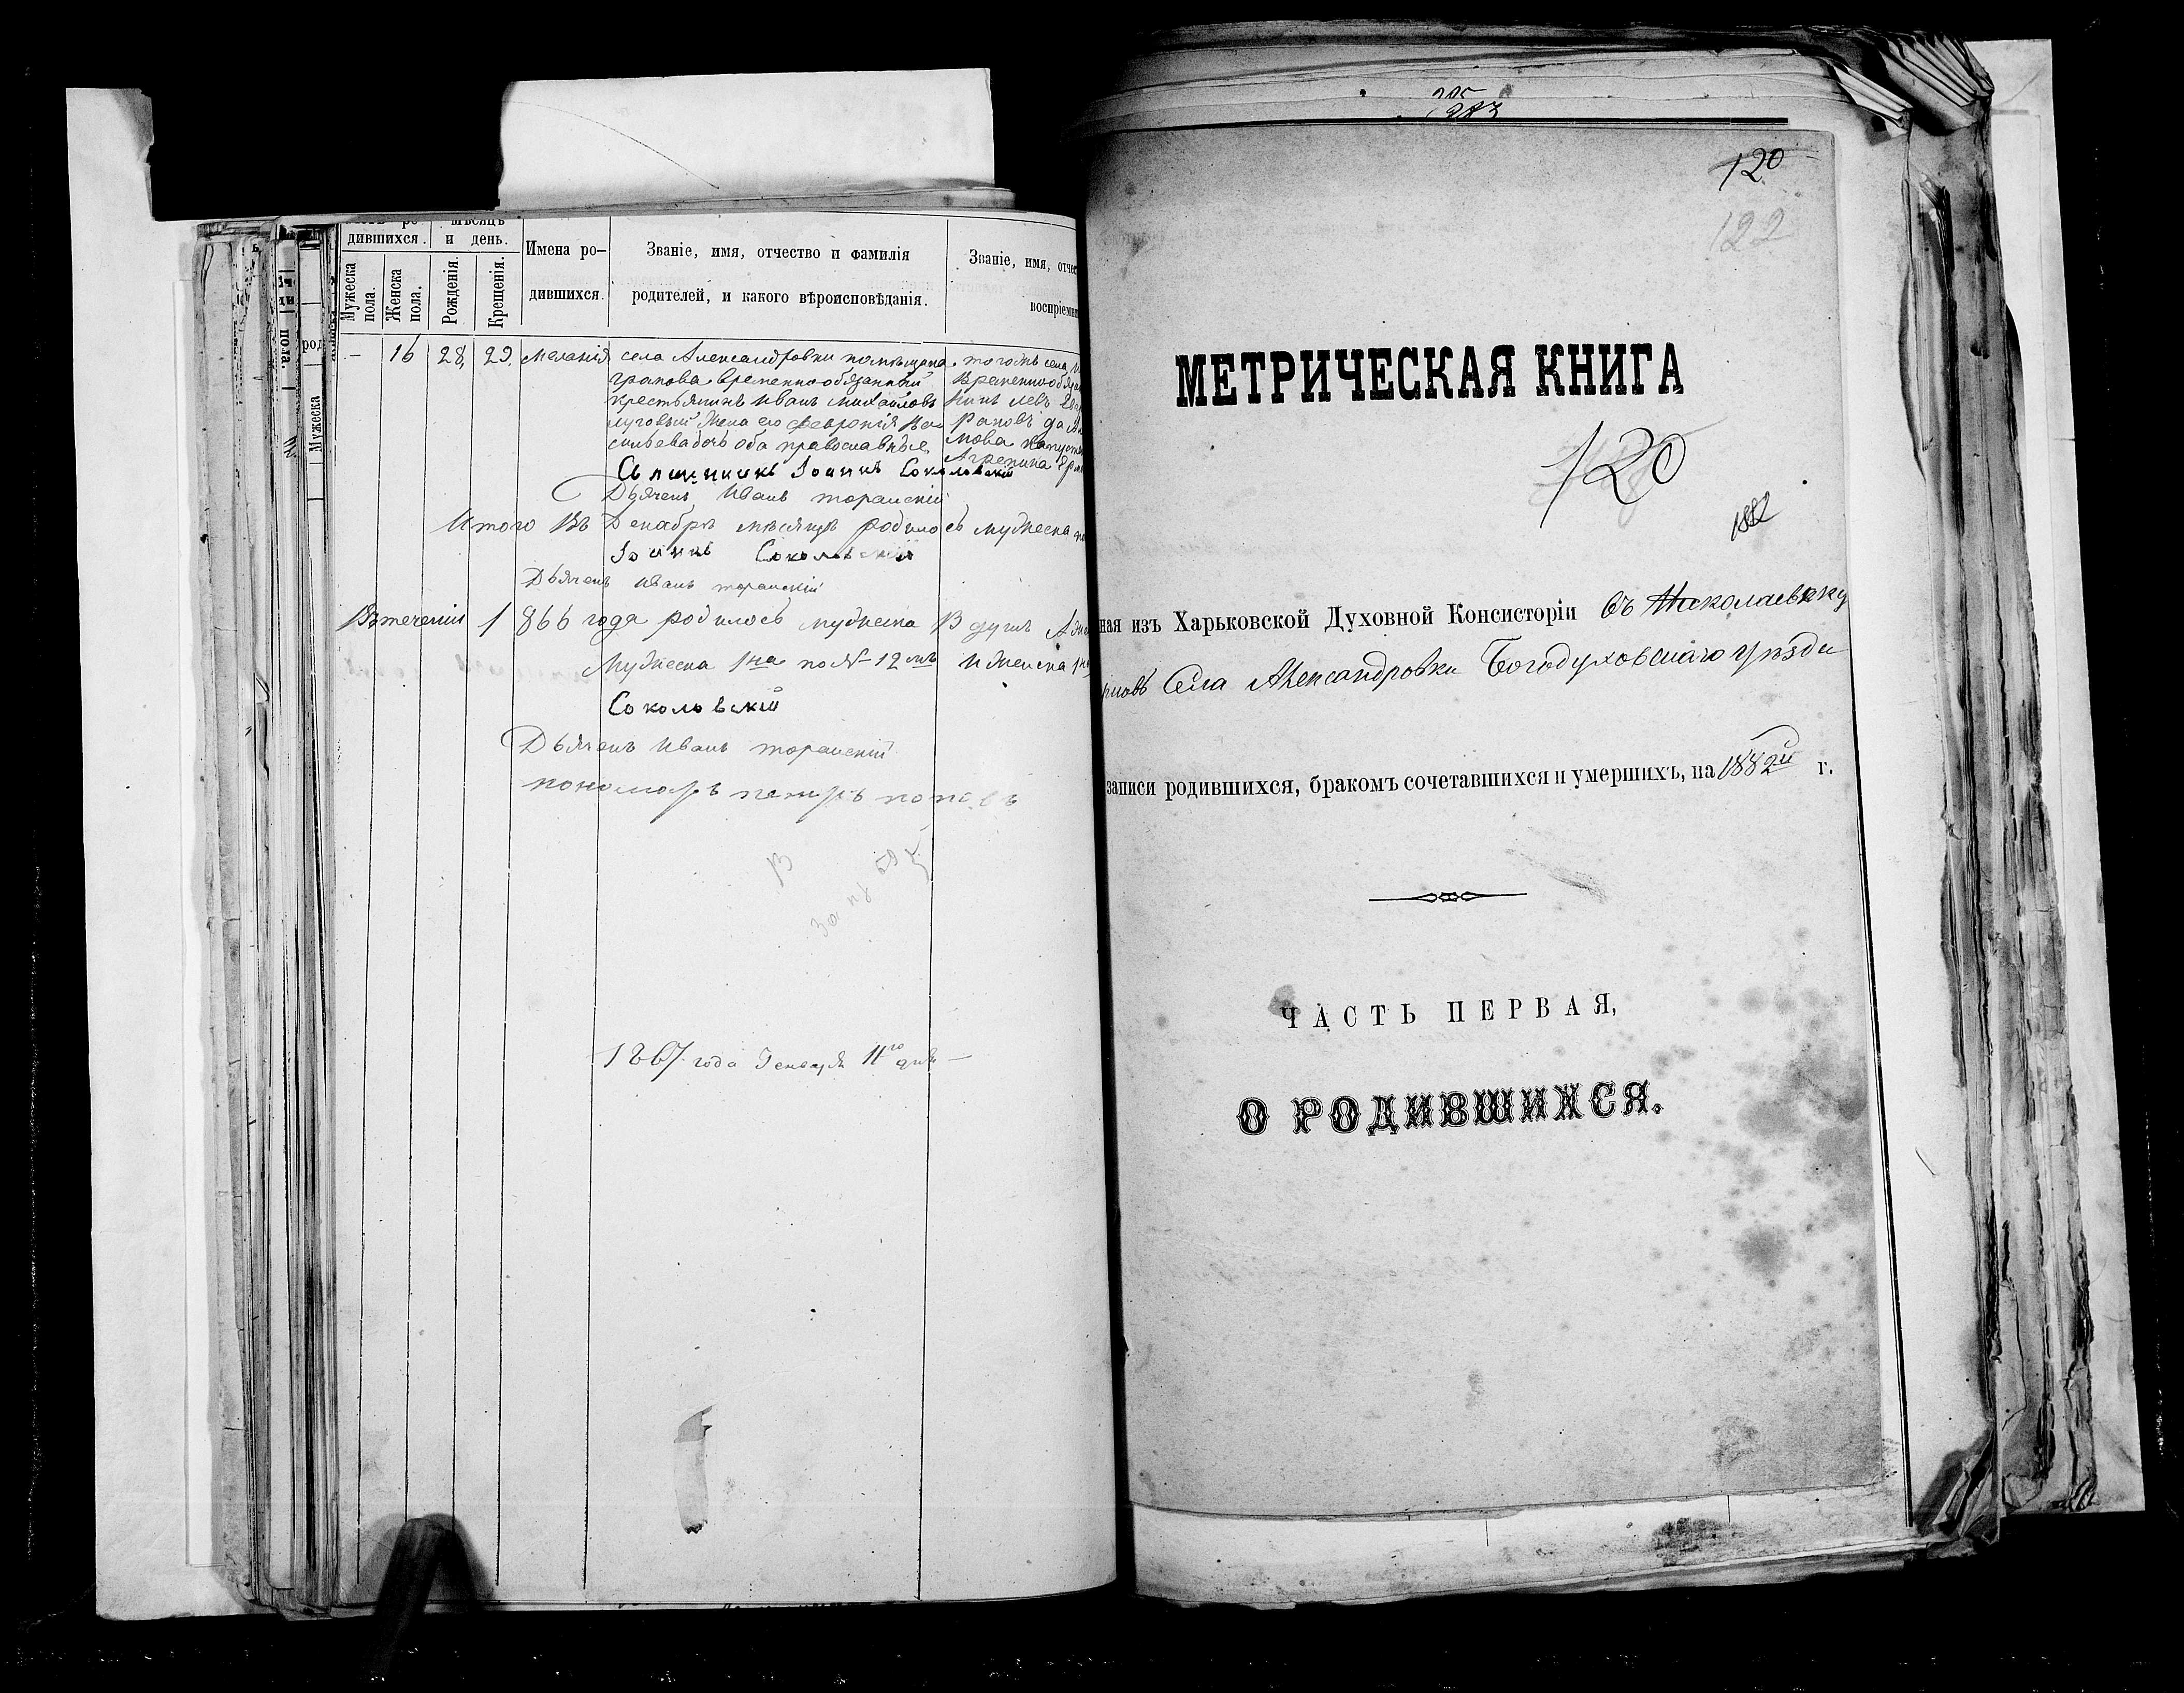 дившихся.
и день.
Имена ро-
дившихся.
Званіе, имя, отчество и фамилія
родителей, и какого вѣроисповѣданія.
Званіе, имя, отчес
воспріемн
Мужеска
пола.
Женска
пола.
Рожденія.
Крещенія.
Мужеска
— 16 28, 29, Меланія
села Александровки помѣщика
временнообязанный
крестьянинъ Иванъ Михайловъ
луговый жена его Февронія Ва-
сильева дочь оба православные
тогожъ села
временнообя
Левъ
да
Агрепина
Священникъ Іоаннъ Соколовскій
Дьячекъ Иванъ торанскій
Итого въ Декабрѣ мѣсяцѣ родилось мужеска
Іоаннъ Соколовскій
Дьячекъ Иванъ торанскій
Въ теченіи 1866 года родилось мужеска
Мужеска 1на по № 12мъ и женска
Соколовскій
Дьячекъ Иванъ торанскій
пономарь петръ поповъ
1867 года Генваря 11го дня —
120
122
МЕТРИЧЕСКАЯ КНИГА
120
1882
ная изъ Харьковской Духовной Консисторіи въ Николаевскую
Села Александровки Богодуховскаго уѣзда
записи родившихся, бракомъ сочетавшихся и умершихъ, на 1882й г.
ЧАСТЬ ПЕРВАЯ,
О РОДИВШИХСЯ.